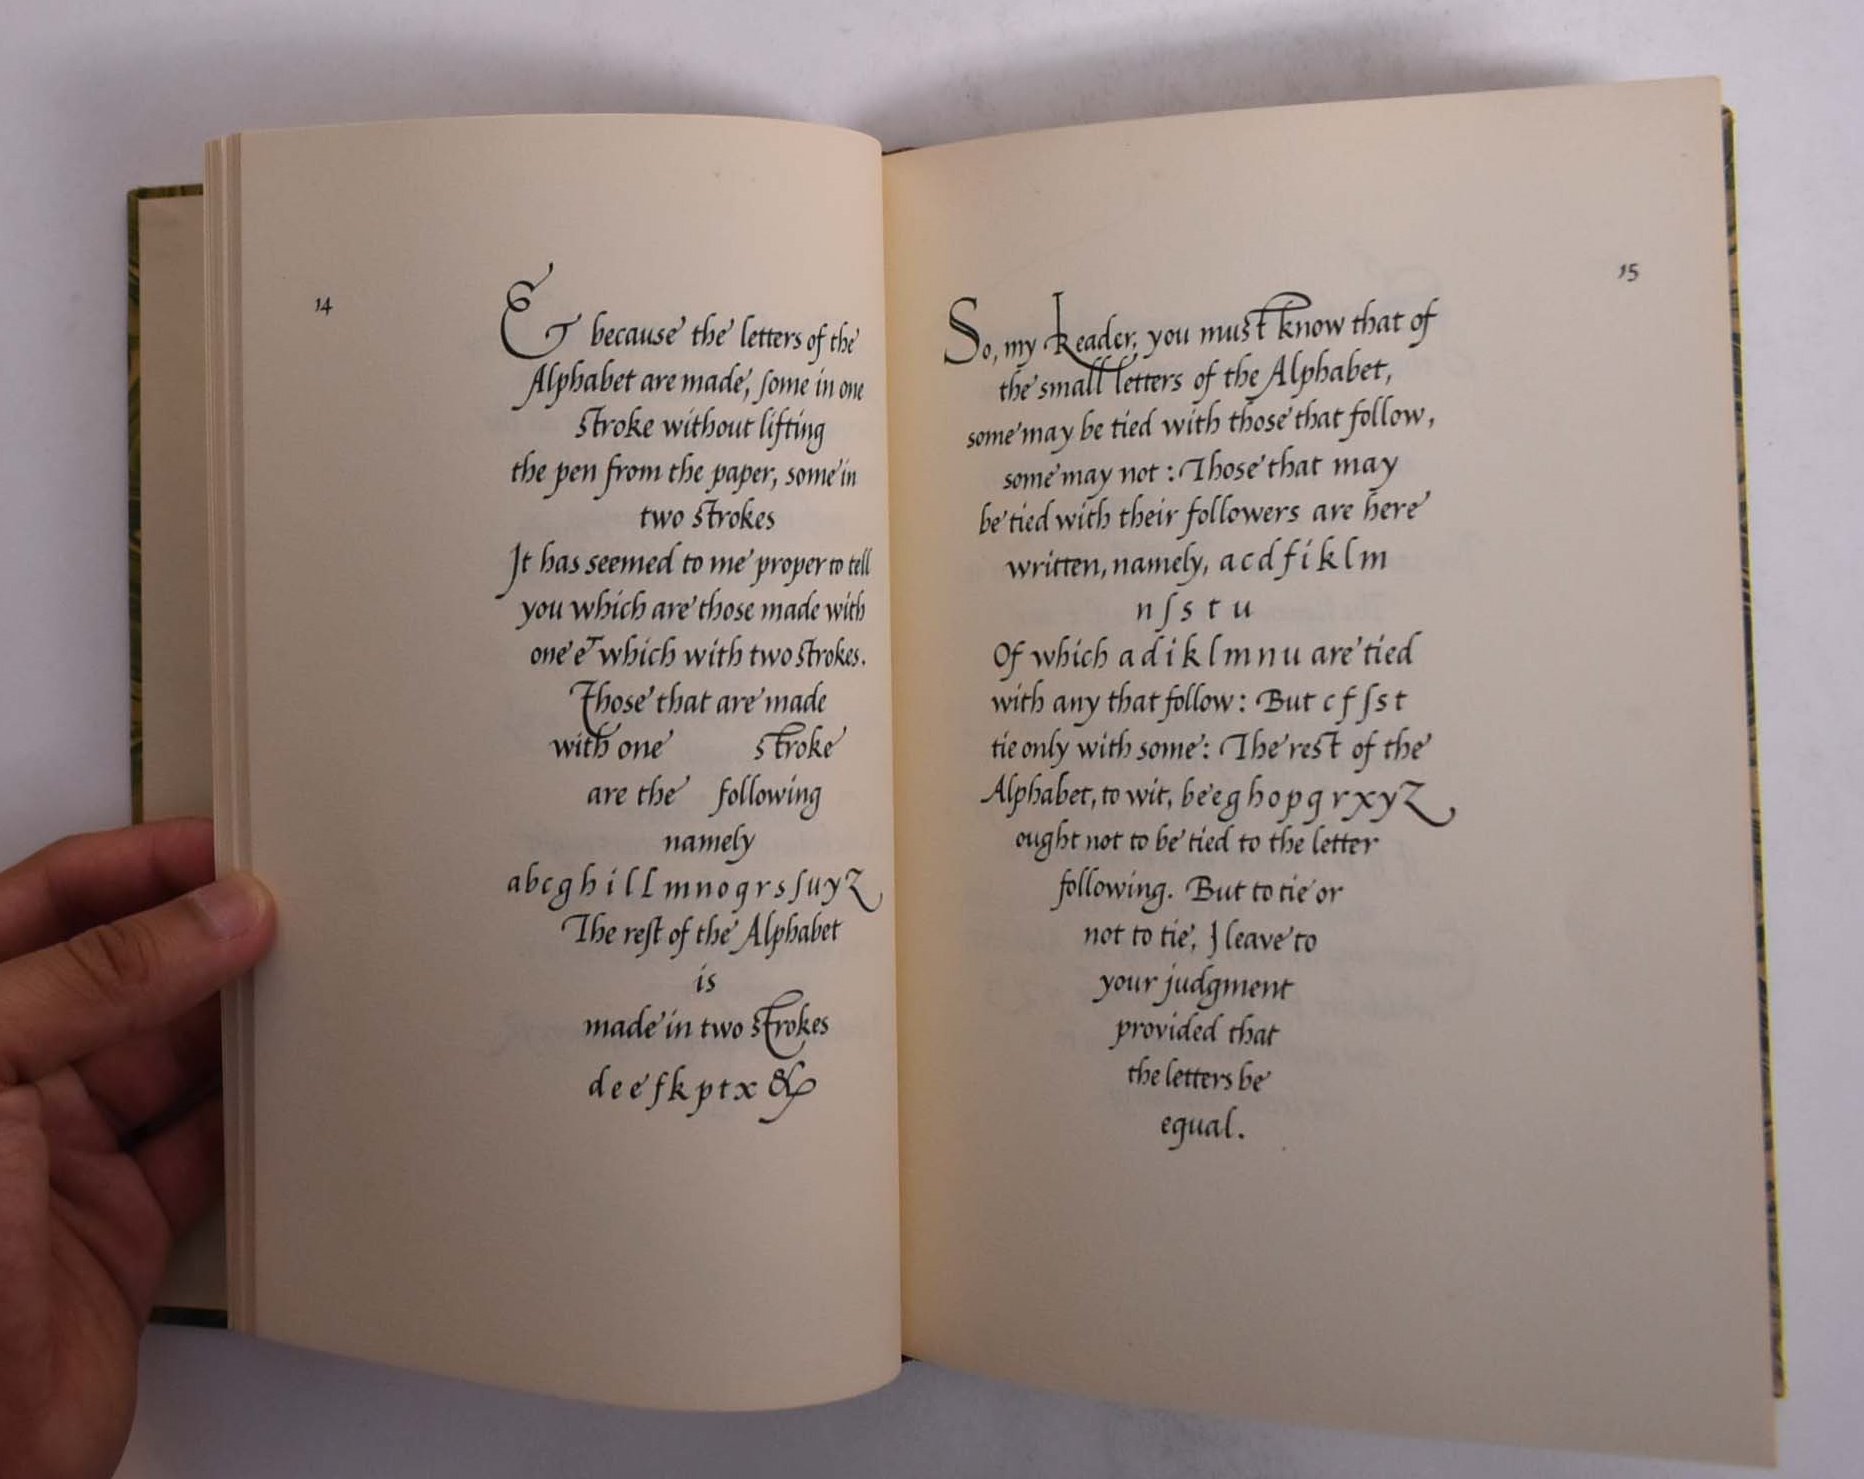 14
Et because the letters of the
Alphabet are made, ſome in one
stroke without lifting
the pen from the paper, some in
two strokes
It has seemed to me proper to tell
you which are those made with
one et which with two strokes.
Those that are made
with one stroke
are the following
namely
a b c g h i l l m n o q r s ſ u y z
The reſt of the Alphabet
is
made in two strokes
d e e f k p t x &
15
So, my Reader, you must know that of
the small letters of the Alphabet,
some may be tied with those that follow,
some may not : Those that may
be tied with their followers are here
written, namely, a c d f i k l m
n ſ s t u
Of which a d i k l m n u are tied
with any that follow : But c f ſ s t
tie only with some : The rest of the
Alphabet, to wit, b e e g h o p q r x y z
ought not to be tied to the letter
following. But to tie or
not to tie, I leave to
your judgment
provided that
the letters be
equal.